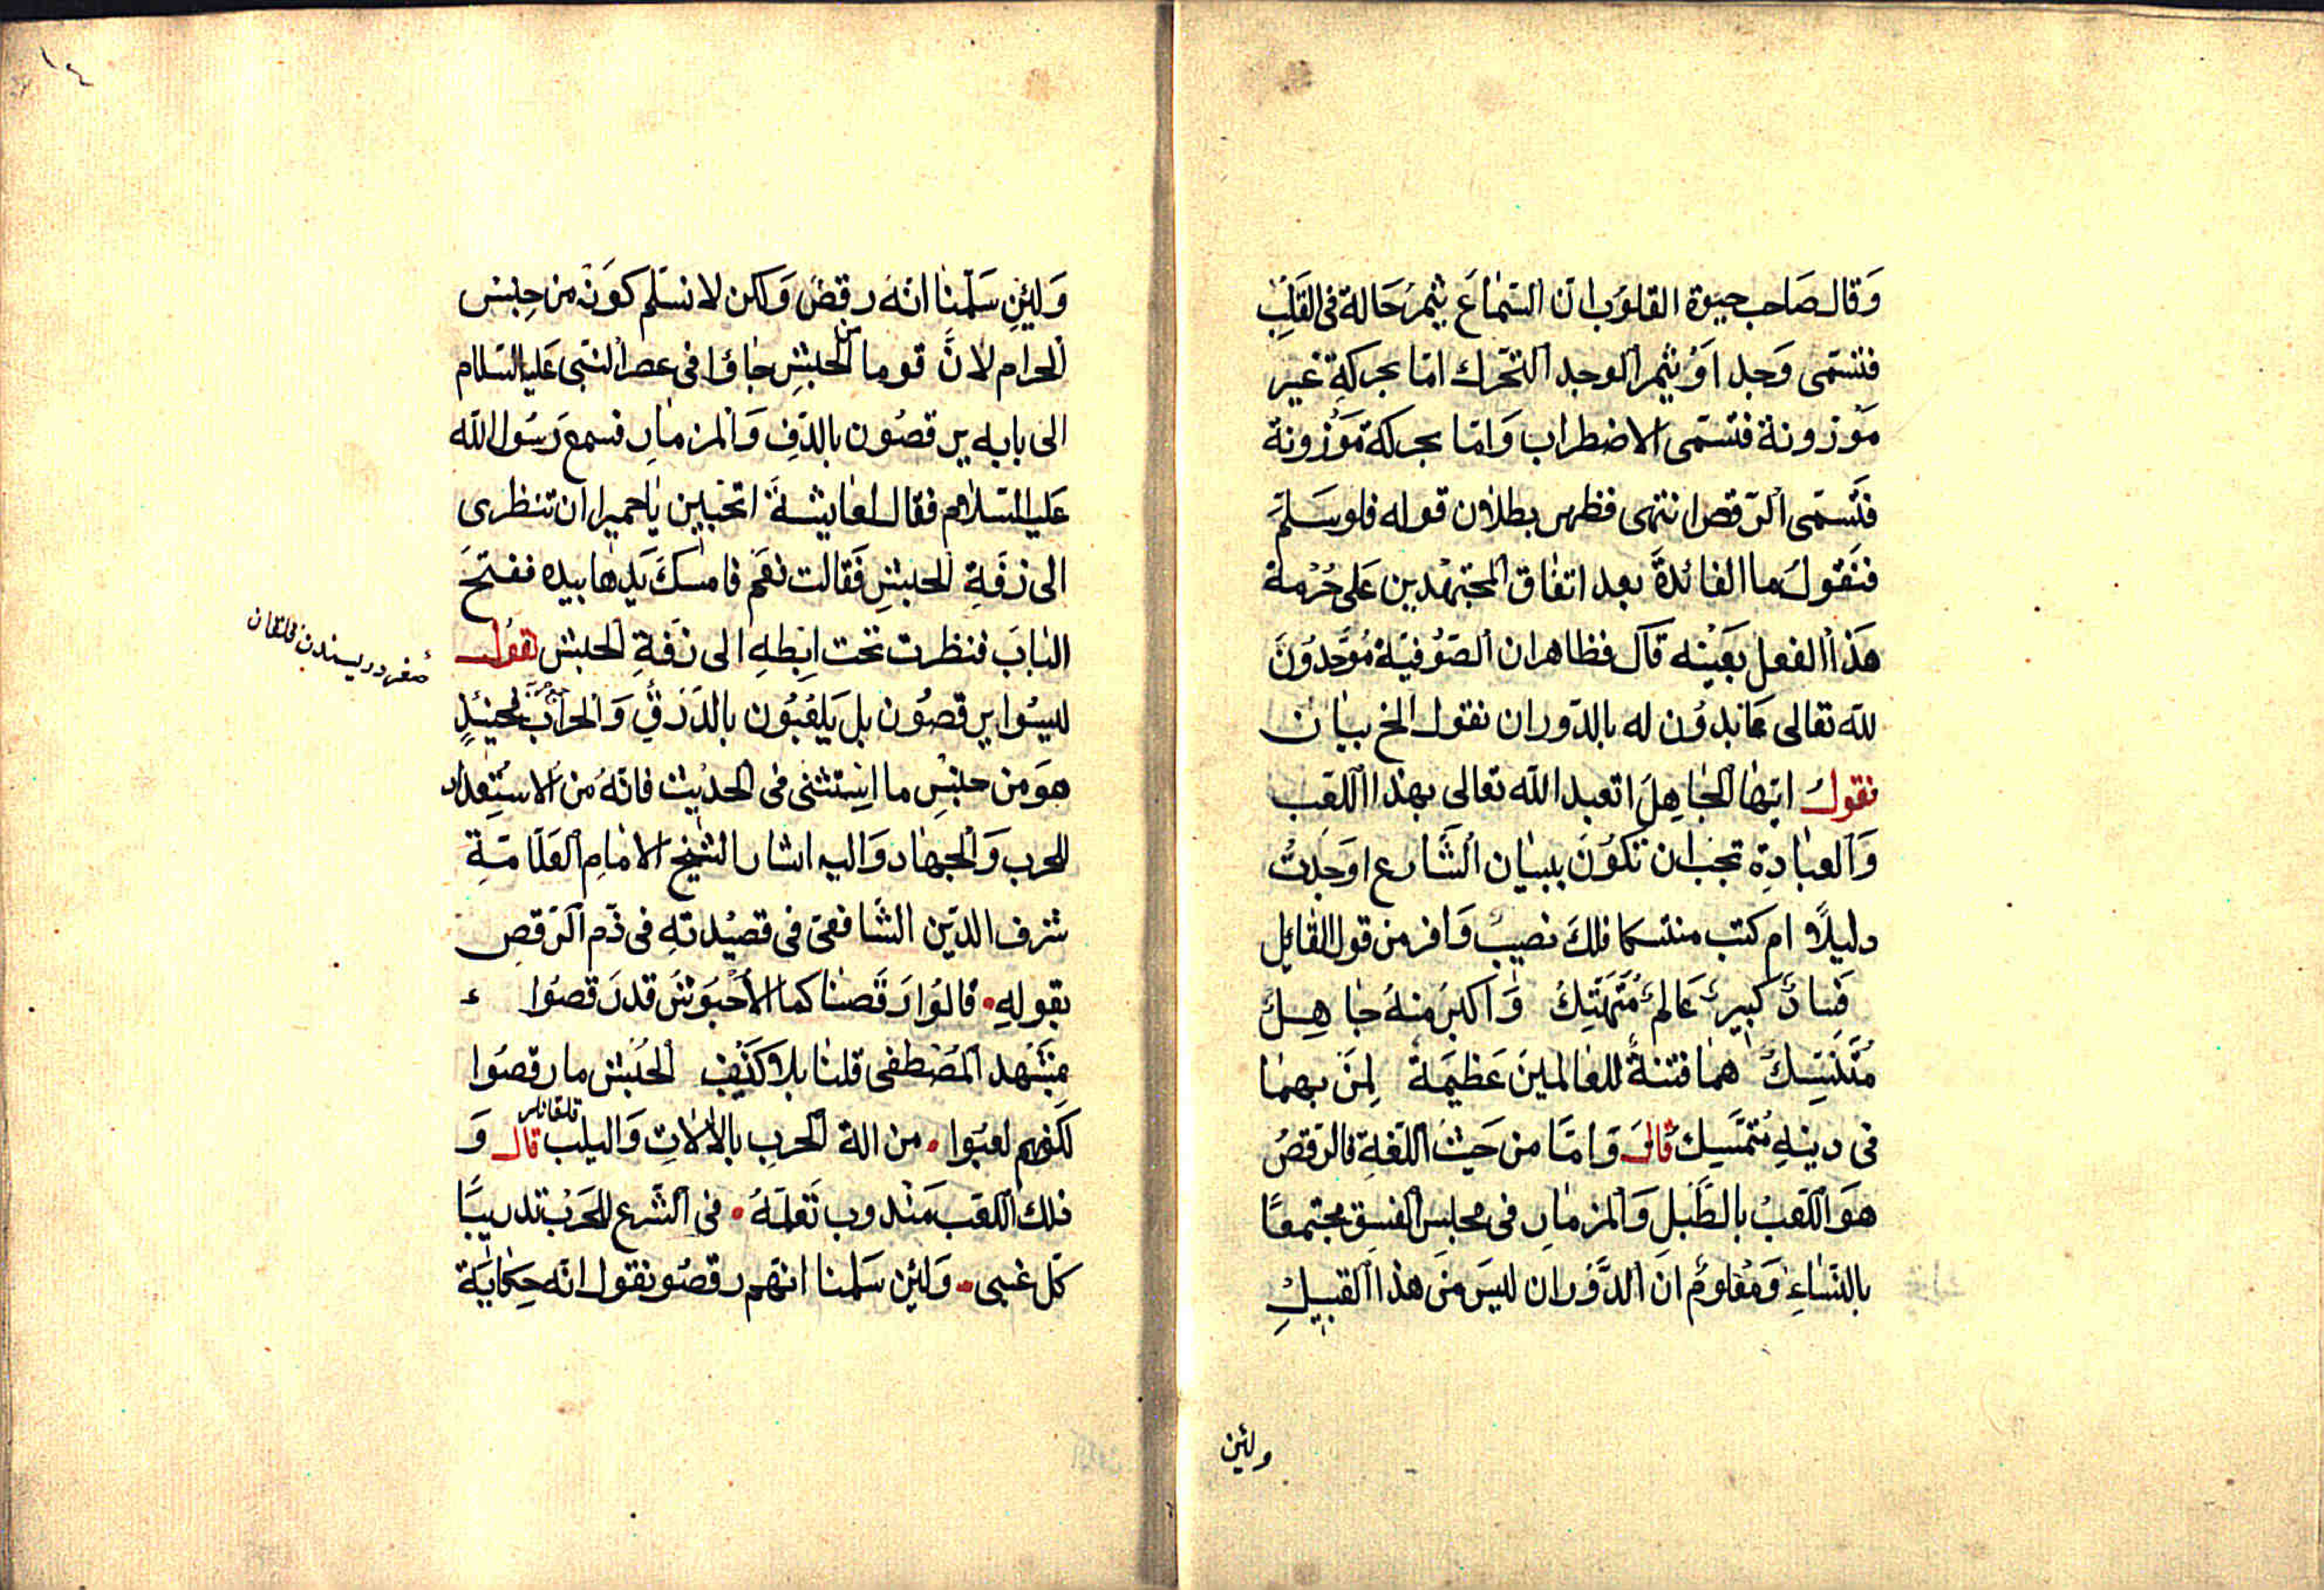 وَقال صَاحب حيوة القلوُب ان السَّماعَ يثمرُ حَالة فى القَلبِ
فتسَمّى وَجدا وَيُثمر الوجد التحَّرك امّا بحركةٍ غير
مَوْزونة فتسَمّى الاضطراب وَامّا بحركة مَوْزونة
فتَسَمّى الرّقص انتهى فظهر بطلان قوله فلو سَلّمَ
فنَقولُ ما الفائدةَ بعد اتفاق المجتهدين عَلى حُرْمة
هَذا الفعل بعَيْنه قَال فظاهر ان الصّوُفيّة مُوَحّدوُنَ
لله تعالى عَابدوُن له بالدّوران نقول الخ بيان
نقولُ ايّها الجَاهِلُ اتعبد الله تعالى بهذا اللّعب
وَالعبادِة تجب ان تكوُنَ ببيان الشَّارع اوَجدتْ
دليلًا ام كنت متنسكا فلكَ نصيبٌ وَافر من قول القائِل
فَسادٌ كبيرٌ عَالمٌ مُتَهَتِّكُ وَاكبرُ منهُ جَاهِلٌ
مُتَنَسِّكُ هما فتنةٌ للعالمينَ عَظيمَةٌ لِمَن بهما
فى دينهِ مُتمَسِّكُ قالَ وَامّا من حَيْث اللّغةِ فالرّقصُ
هوَ اللّعبُ بالطَّبلِ وَالمزمارِ فى مجلسِ الفسِق مجتمعًا
بالنّسَاءِ وَمَعْلومٌ انَ الدَّوَران ليسَ مَن هذا القبيلِ
ولئن
١٤
وَلئِن سَلّمنا انّهَ رقصُ وَلكن لا نسَلّم كوَنْه من جِنس
الحرام لانَّ قوما من الحبشِ جاؤا فى عصر النبّى عَليه السّلام
الى بابه يرقصُون بالدّفِ وَالمزمارِ فسمع رَسُول الله
عَليه السّلام فقال لعايشةَ اتحبّين يا حميرا ان تنظرى
الى زفَةِ الحبشِ فَقالت نعَم فامسَكَ يَدها بيده ففتحَ
البابَ فنظرت تحت اِبطهِ الى زفَةِ الحبش نقول
ليسُوا يرقصُون بل يَلعَبُون بالدّرَقِ وَالحراب فحينئِذٍ
هوَ من جنسِ ما استثنى فى الحديث فانّهُ من الاستعداد
للحرب وَالجهاد وَاليه اشار الشّيخ الامامِ العَلّامَةِ
شرف الدّين الشَّافعىّ فى قصيْدتهِ فى ذّم الرّقصِ
بقولهِ • قالوُا رَقَصنا كما الأحْبوُشَ قدرَقصُوا
بمَشْهد المُصْطفى قلنا بلا كَذِبِ الحُبْش ما رقصُوا
لكنهم لعبَوا • من الة الحربِ بالاٰلاتِ وَاليلب قال وَ
قلقانلر
ذلك اللّعب مَنْدوب تَعلمَّهُ • فى الشَّرع للحَرْب تدريبًا
كّل غبى • وَلئِن سَلمنا انّهم رقصُو نقول انّه حِكايَة